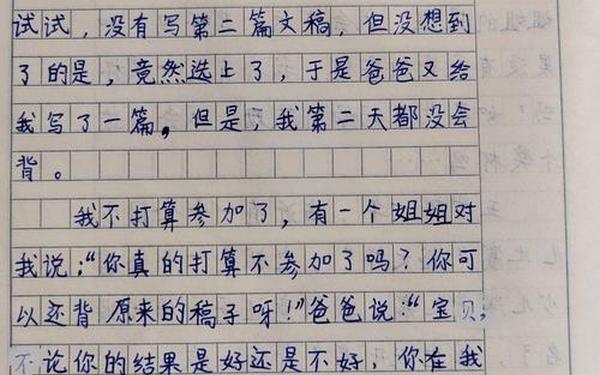 试试，没有写第二篇文稿，但没想到
了的是，竟然选上了，于是爸爸又给
我写了一篇，但是，我第二天都没会
背。
我不打算参加了，有一个姐姐对
我说：“你真的打算不参加了吗？你可
以还背原来的稿子呀！”爸爸说：“宝贝，
不论你的结果是好还是不好，你在我